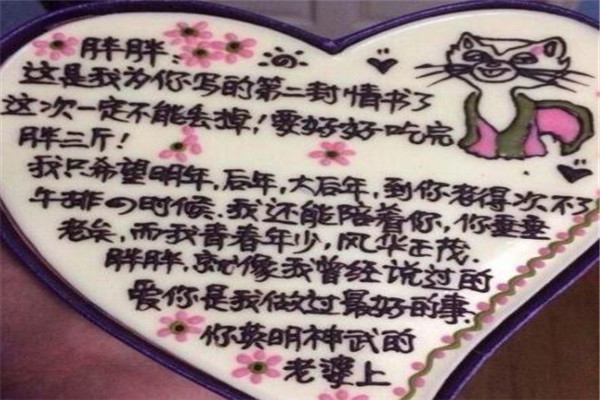 胖胖：
这是我为你写的第二封情书了
这次一定不能丢掉！要好好吃完
胖三斤！
我只希望明年，后年，大后年，到你老得吃不了
牛排的时候．我还能陪着你，你垂垂
老矣，而我青春年少，风华正茂．
胖胖，就像我曾经说过的
爱你是我做过最好的事．
你英明神武的
老婆上